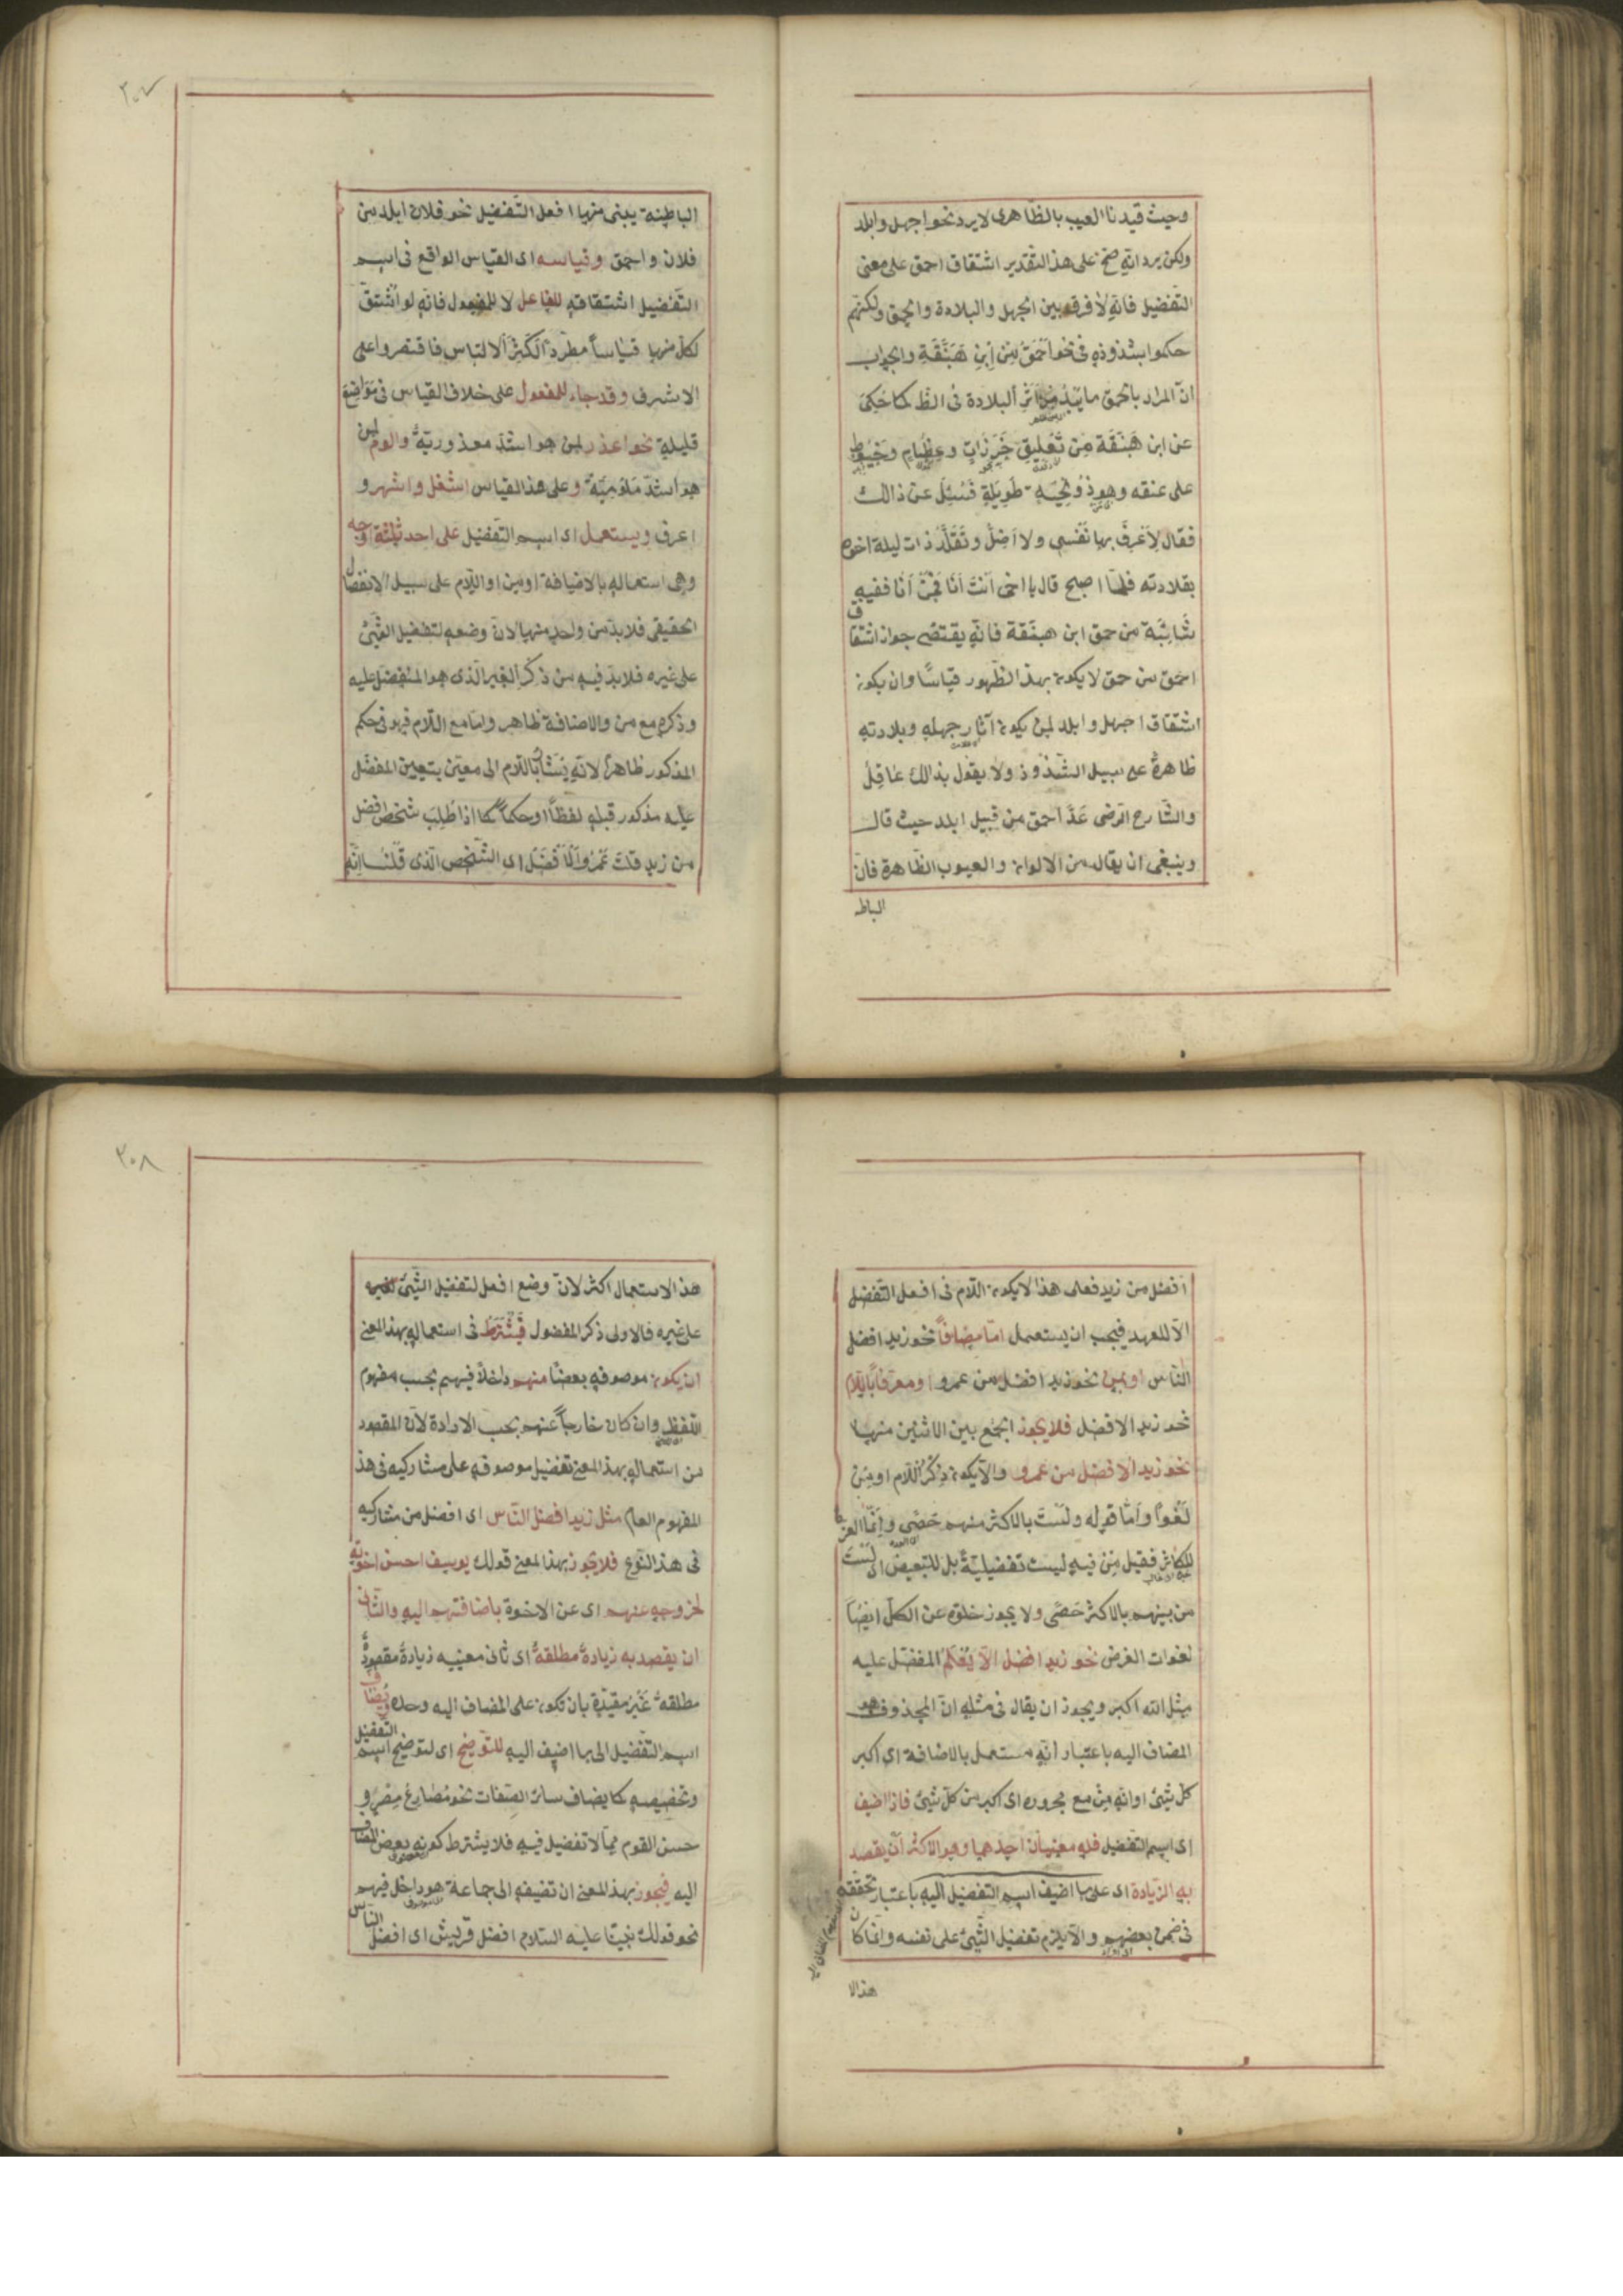 وحيث قيدنا العيب بالظاهرى لا يرد نحو اجهل وابلد
ولكن يرد انّه صحّ على هذا التقدير اشتقاق احمق على معنى
التفضيل فانّه لا فرق بين الجهل والبلادة والحمق ولكنّهم
حكموا بشذوذه فى نحو اَحْمَقُ مِنْ اِبْنِ هَبَنَّقَةِ والجواب
انّ المراد بالحمق ما يَبْدُو مِنْ اَثَرِ اَلبلادة فى الظ كما حُكِىَ
عن ابن هَبَنَّقَة مِنْ تَعْلِيقِ خَرَزَاتٍ وعِظَامٍ وخُيُوطٍ
على عنقه وهو ذُو لِحْيَةٍ طَوِيلَةٍ فَسُئِلَ عن ذالك
فقال لِاَعْرِفَ بها نَفْسِى ولا اَضِلُّ وتَقَلَّدَ ذات ليلة اخوه
بقلادته فلمّا اصبح قال يا اخى اَنْتَ اَنَا فَمَنْ اَنَا ففيه
شَائِبَة من حمق ابن هبنّقة فانّه يقتضى جواز اشتقاق
احمق من حمق لا يكون بهذا الظهور قياسًا وان يكون
اشتقاق اجهل وابلد لمن يكون آثار جهله وبلادته
ظاهرةً على سبيل الشذوذ ولا يقول بذالك عاقِل
والشّارح الرّضى عَدَّ احمق من قبيل ابلد حيث قال
وينبغى ان يقال من الالوان والعيوب الظّاهرة فانّ
الباط
٢٠٧
الباطنة يبنى منها افعل التّفضيل نحو فلان ابلد من
فلان واحمق وقياسه اى القياس الواقع فى اسم
التّفضيل اشتقاقه للفاعل لا للمفعول فانّه لو اُشْتقّ
لكلّ منها قياساً مطّرداً لَكَثُرَ اَلالتباس فاقتصروا على
الاشرف وقد جاء للمفعول على خلاف القياس فى مَوَاضِعَ
قليلةٍ نحو اعذر لمن هو اشدّ معذوريّةً والوم لمن
هو اشدّ مَلُومِيَّةً وعلى هذا القياس اشغل واشهر و
اعرف ويستعمل اى اسم التّفضيل على احد ثلثة اوجه
وهى استعماله بالاضافة او من او اللّام على سبيل الانفصال
الحقيقى فلا بدّ من واحد منها لانّ وضعه لتفضيل الشّئ
على غيره فلا بدّ فيه من ذكر الغير الّذى هو المفضّل عليه
وذكره مع من والاضافة ظاهر وامّا مع اللّام فهو فى حكم
المذكور ظاهراً لانّه يُشَارُ باللّام الى معيّن بتعيين المفضّل
عليه مذكور قبله لفظاً او حكماً كما اذا طُلِبَ شخص افضل
من زيد قلتَ عَمْرٌو اَلْاَفْضَلُ اى الشّخص الّذى قُلْنَا اِنَّهُ
افضل من زيد فعلى هذا لا يكون اللّام فى افعل التّفضيل
الّا للعهد فيجب ان يستعمل امّا مضافاً نحو زيد افضل
النّاس او بمن نحو زيد افضل من عمرو او معرّفاً باللّام
نحو زيد الافضل فلا يجوز الجمع بين الاثنين منها
نحو زيد الافضل من عمرو والّا يكون ذِكْرُ اللّام او مِنْ
لَغْواً وامّا قوله ولَسْتَ بالاكثر منهم حَصًى وَاِنَّمَا العزّة
للكاثر فقيل مِنْ فيه ليست تفضيليّةً بل للتبعيض اى لَسْتَ
من بينهم بالاكثر حَصًى ولا يجوز خلوّه عن الكلّ ايضًا
لفوات الغرض نحو زيد افضل الّا اَنْ يُعْلَمَ المفضّل عليه
مثل اللّه اكبر ويجوز ان يقال فى مثله انّ المحذوف هو
المضاف اليه باعتبار انّه مستعمل بالاضافة اى اكبر
كلّ شئ او انّه مِنْ مع مجروره اى اكبر من كلّ شئ فاذا اضيف
اى اسم التفضيل فله معنيان احدهما وهو الاكثر اَنْ يقصد
به الزّيادة اى على ما اضيف اسم التفضيل اليه باعتبار تحقّقه
فى ضمن بعضهم والّا يلزم تفضيل الشّئ على نفسه وانّما كان
هذا الا
٢٠٨
هذا الاستعمال اكثر لانّ وضع افعل لتفضيل الشّئ
على غيره فالاولى ذكر المفضول فَيُشْتَرَطُ فى استعماله بهذا المعنى
ان يكون موصوفه بعضًا منهم داخلاً فيهم بحسب مفهوم
اللّفظ وان كان خارجاً عنهم بحسب الارادة لانّ المقصود
من استعماله بهذا المعنى تفضيل موصوفه على مشاركيه فى هذا
المفهوم العام مثل زيد افضل النّاس اى افضل من مشاركيه
فى هذا النّوع فلا يجوز بهذا المعنى قولك يوسف احسن اخوته
لخروجه عنهم اى عن الاخوة باضافتهم اليه والثّانى
ان يقصد به زيادةً مطلقةً اى ثانى معنييه زيادةً مقصودةً
مطلقةً غَيْرَ مقيّدةٍ بان تكون على المضاف اليه وحده ويُضَاف
اسم التّفضيل الى ما اضيف اليه للتّوضيح اى لتوضيح اسم التّفضيل
وتخصيصه كما يضاف سائر الصّفات نحو مُصَارِعُ مِصْرَ و
حسن القوم ممّا لا تفضيل فيه فلا يشترط كونه بعض المضاف
اليه فيجوز بهذا المعنى ان تضيفه الى جماعة هو داخل فيهم
نحو قولك نبيّنا عليه السّلام افضل قريش اى افضل النّاس